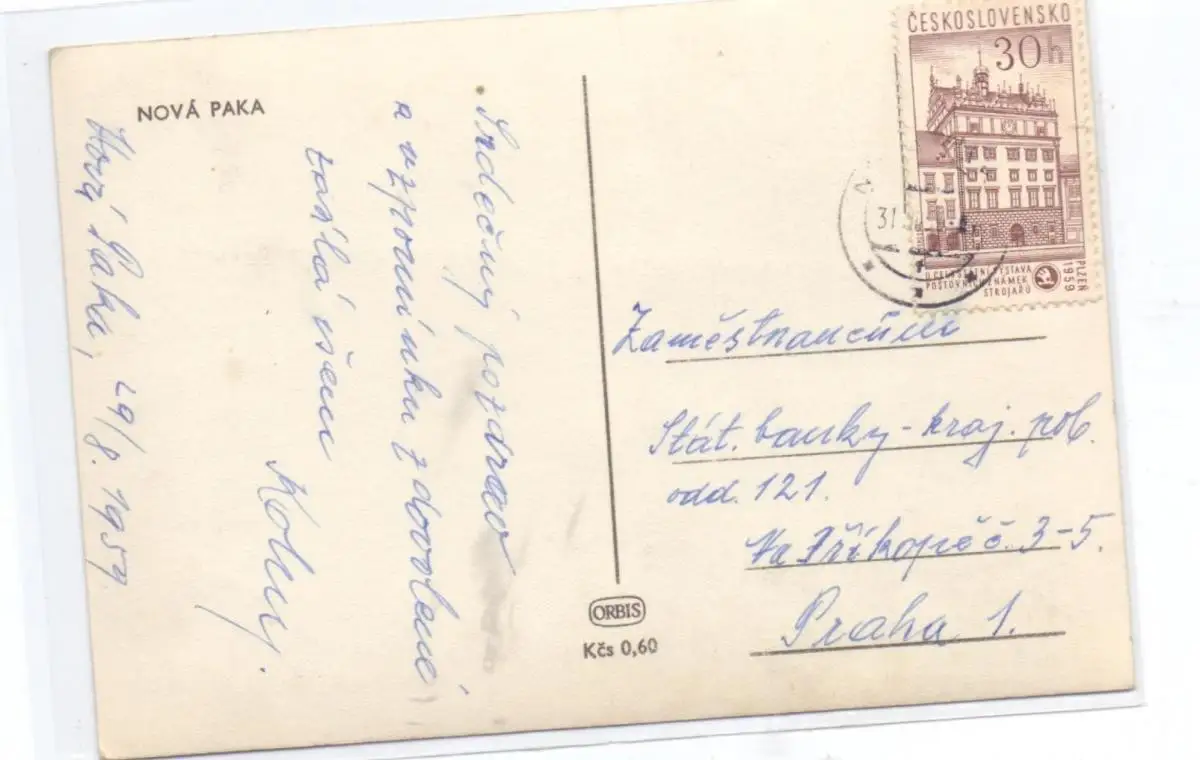 NOVÁ PAKA
Nová Paka, 29/8. 1959
Srdečný pozdrav
a vzpomínku z dovolené
všem
ČESKOSLOVENSKO
30h
CELOSTÁTNÍ VÝSTAVA
POŠTOVNÍCH ZNÁMEK
STROJAŘŮ
PLZEŇ
1959
31
Zaměstnancům
Stát. banky - kraj. pob.
odd. 121.
Na Příkopě č. 3-5.
Praha 1.
ORBIS
Kčs 0,60